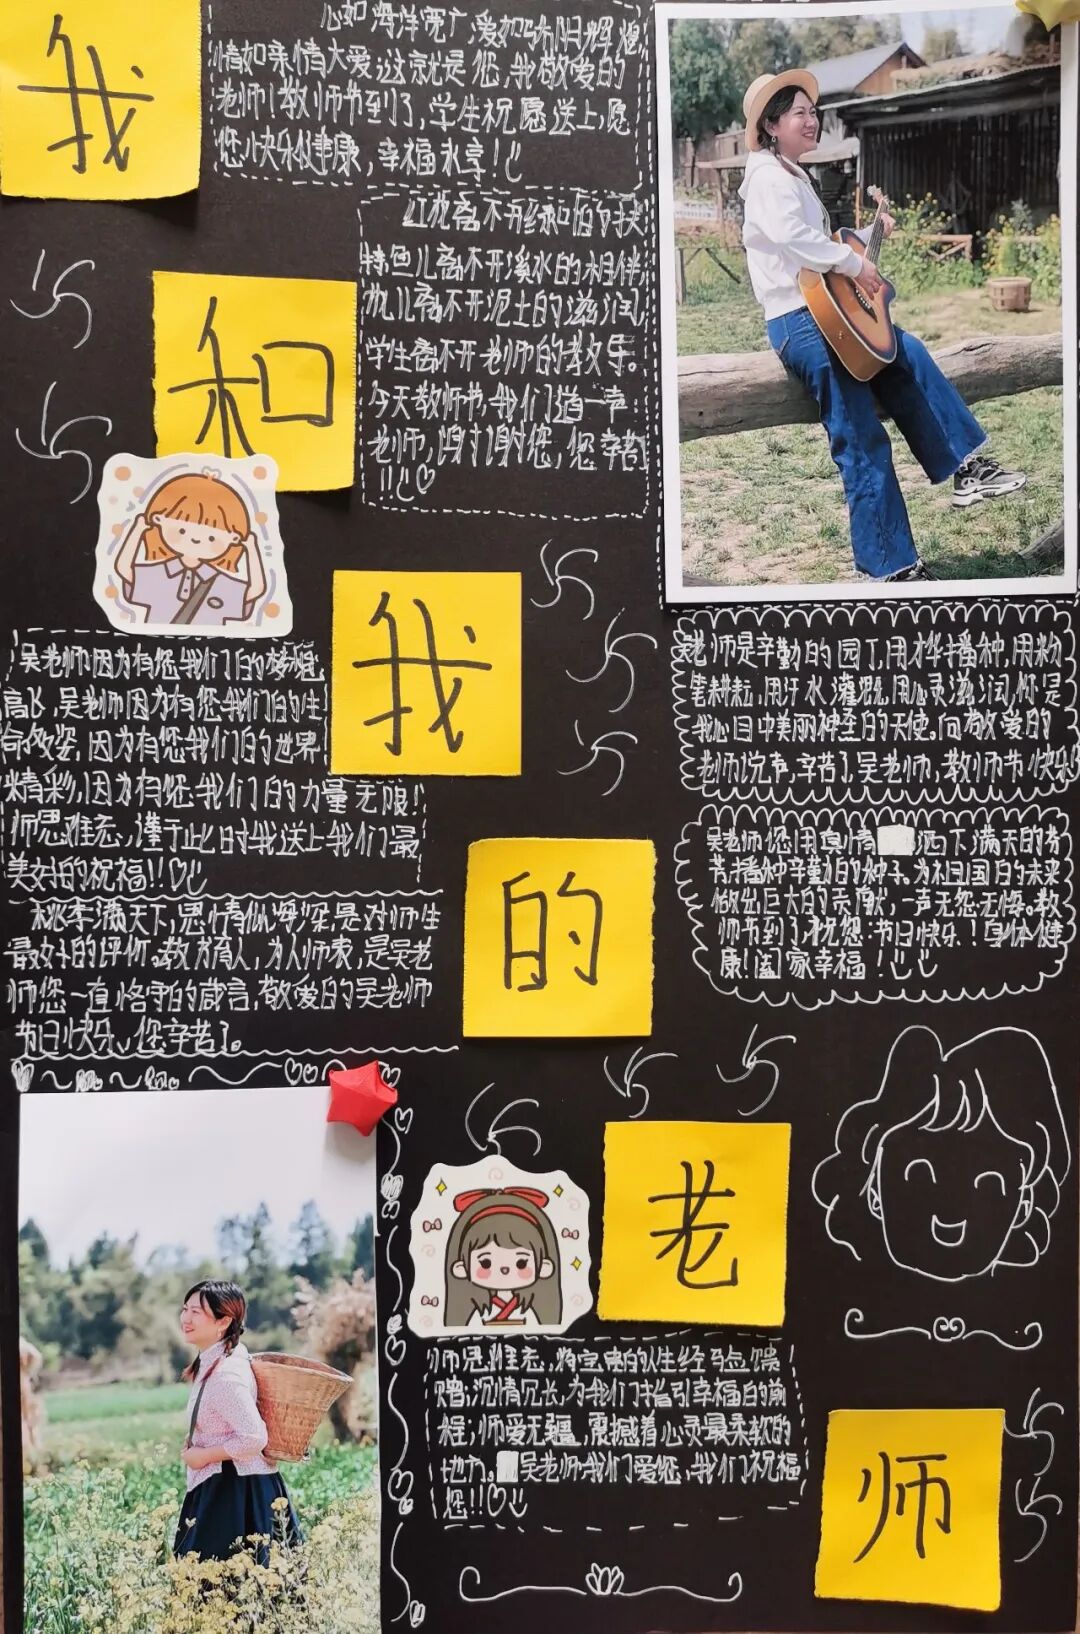 我
和
我
的
老
师
心如海洋宽广,爱如骄阳辉煌,
情如亲情大爱,这就是您,我敬爱的
老师!教师节到了,学生祝愿送上,愿
您快乐健康,幸福永享!
红花离不开绿叶的扶
持,鱼儿离不开溪水的相伴,
花儿离不开泥土的滋润,
学生离不开老师的教导。
今天教师节,我们道一声:
老师,谢谢您,您辛苦
!!
吴老师因为有您我们的梦想
高飞,吴老师因为有您我们的生
命多姿,因为有您我们的世界
精彩,因为有您我们的力量无限!
师恩难忘,谨于此时我送上我们最
美好的祝福!!
桃李满天下,恩情似海深,是对师生
最好的评价。教书育人,为人师表,是吴老
师您一直恪守的箴言,敬爱的吴老师
节日快乐,您辛苦了。
老师是辛勤的园丁,用才华播种,用粉
笔耕耘,用汗水灌溉,用心灵滋润,你是
我心目中美丽神圣的天使。向敬爱的
老师说声,辛苦了吴老师,教师节快乐
吴老师您用真情洒下满天的芬
芳,播种辛勤的种子。为祖国的未来
做出巨大的贡献,一声无怨无悔。教
师节到了,祝您:节日快乐!身体健
康!阖家幸福!
师恩难忘,将宝贵的人生经验馈
赠;沉情冗长,为我们指引幸福的前
程;师爱无疆,震撼着心灵最柔软的
地方。吴老师我们爱您,我们祝福
您!!